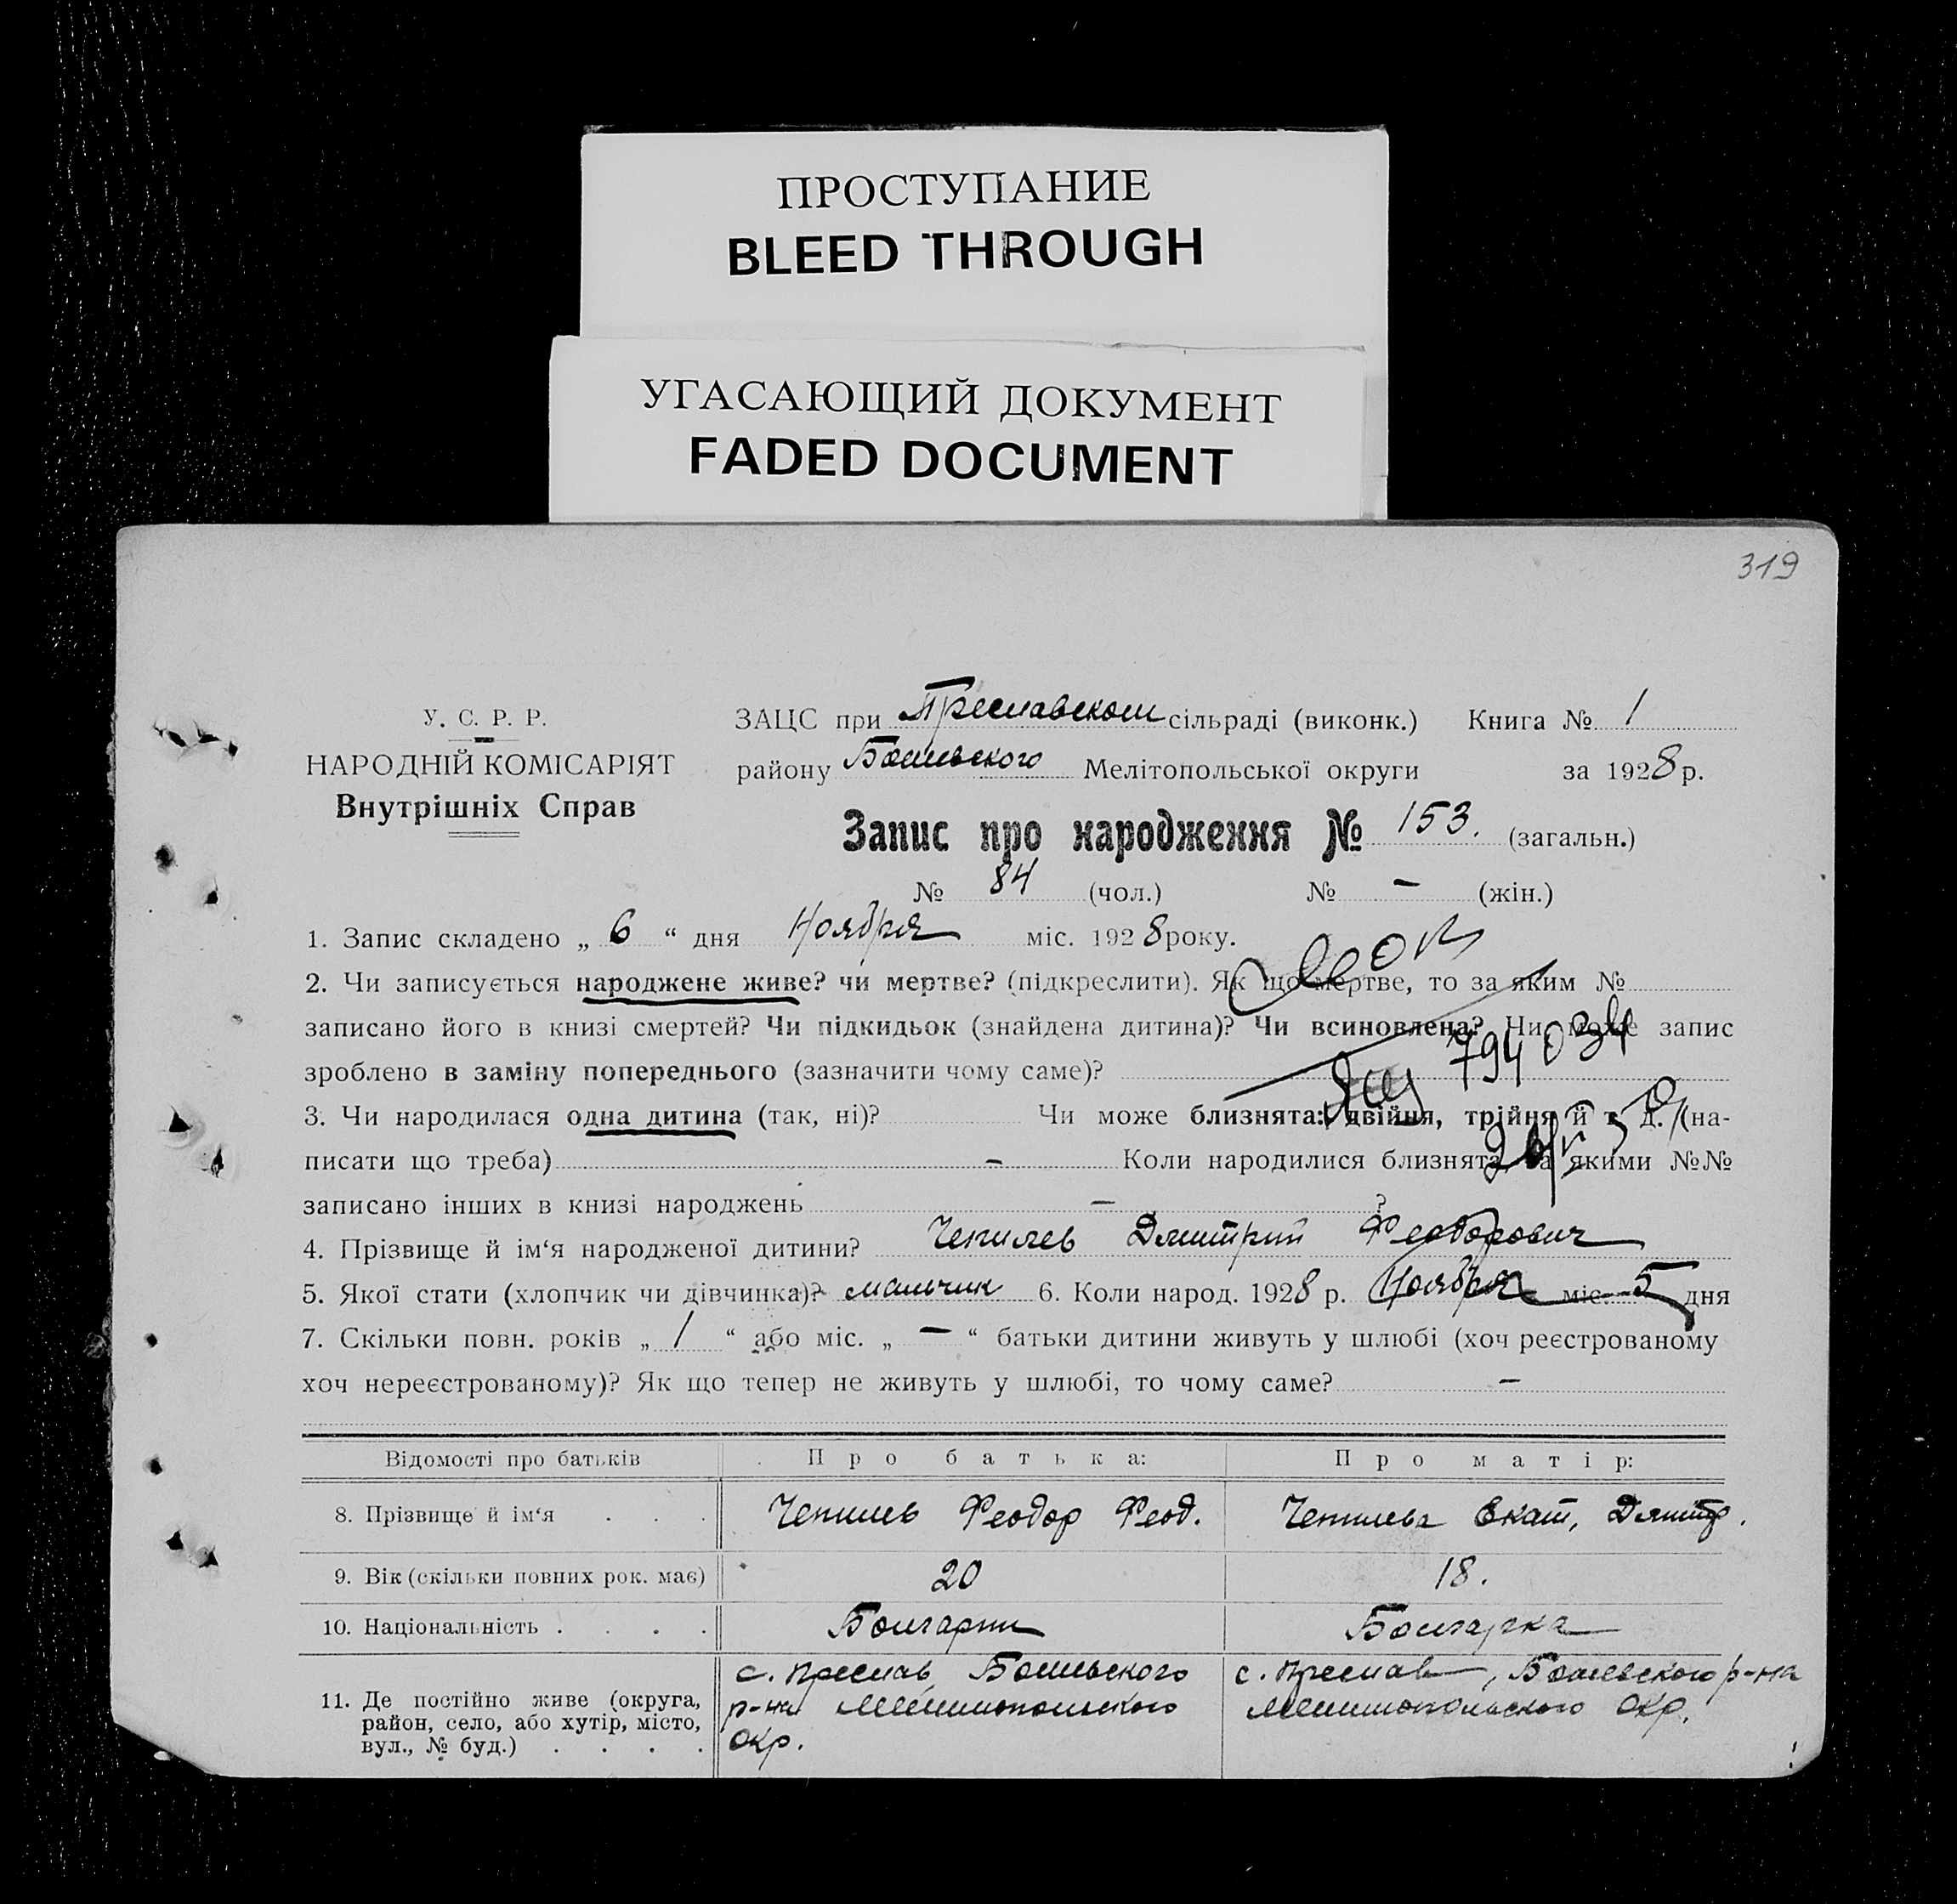 ПРОСТУПАНИЕ
BLEED THROUGH
УГАСАЮЩИЙ ДОКУМЕНТ
FADED DOCUMENT
319
У. С. Р. Р.
НАРОДНІЙ КОМІСАРІЯТ
Внутрішніх Справ
ЗАЦС при Преславском сільраді (виконк.) Книга № 1
району Мелітопольської округи за 1928 р.
Запис про народження № 153. (загальн.)
№ 84 (чол.) № – (жін.)
1. Запис складено „ 6 “ дня Ноября міс. 1928 року.
2. Чи записується народжене живе? чи мертве? (підкреслити). Як що мертве, то за яким №
записано його в книзі смертей? Чи підкидьок (знайдена дитина)? Чи всиновлена? Чи може запис
зроблено в заміну попереднього (зазначити чому саме)?
794034
3. Чи народилася одна дитина (так, ні)? Чи може близнята: двійня, трійня й т. д. (на-
писати що треба) – Коли народилися близнята, за якими №№
записано інших в книзі народжень – ?
4. Прізвище й ім‘я народженої дитини? Чепилев Дмитрий Феодорович
5. Якої стати (хлопчик чи дівчинка)? мальчик 6. Коли народ. 1928 р. Ноября міс. 5 дня
7. Скільки повн. років „ 1 “ або міс. „ – “ батьки дитини живуть у шлюбі (хоч реєстрованому
хоч нереєстрованому)? Як що тепер не живуть у шлюбі, то чому саме? –
Відомості про батьків Про батька: Про матір:
8. Прізвище й ім‘я . . . Чепилев Феодор Феод. Чепилева Екат. Дмитр.
9. Вік (скільки повних рок. має) 20 18.
10. Національність . . . . Болгарин Болгарка
11. Де постійно живе (округа,
район, село, або хутір, місто,
вул., № буд.) . . . .
с. Преслав,
р-на Мелитопольского
окр.
с. Преслав, р-на
Мелитопольского окр.